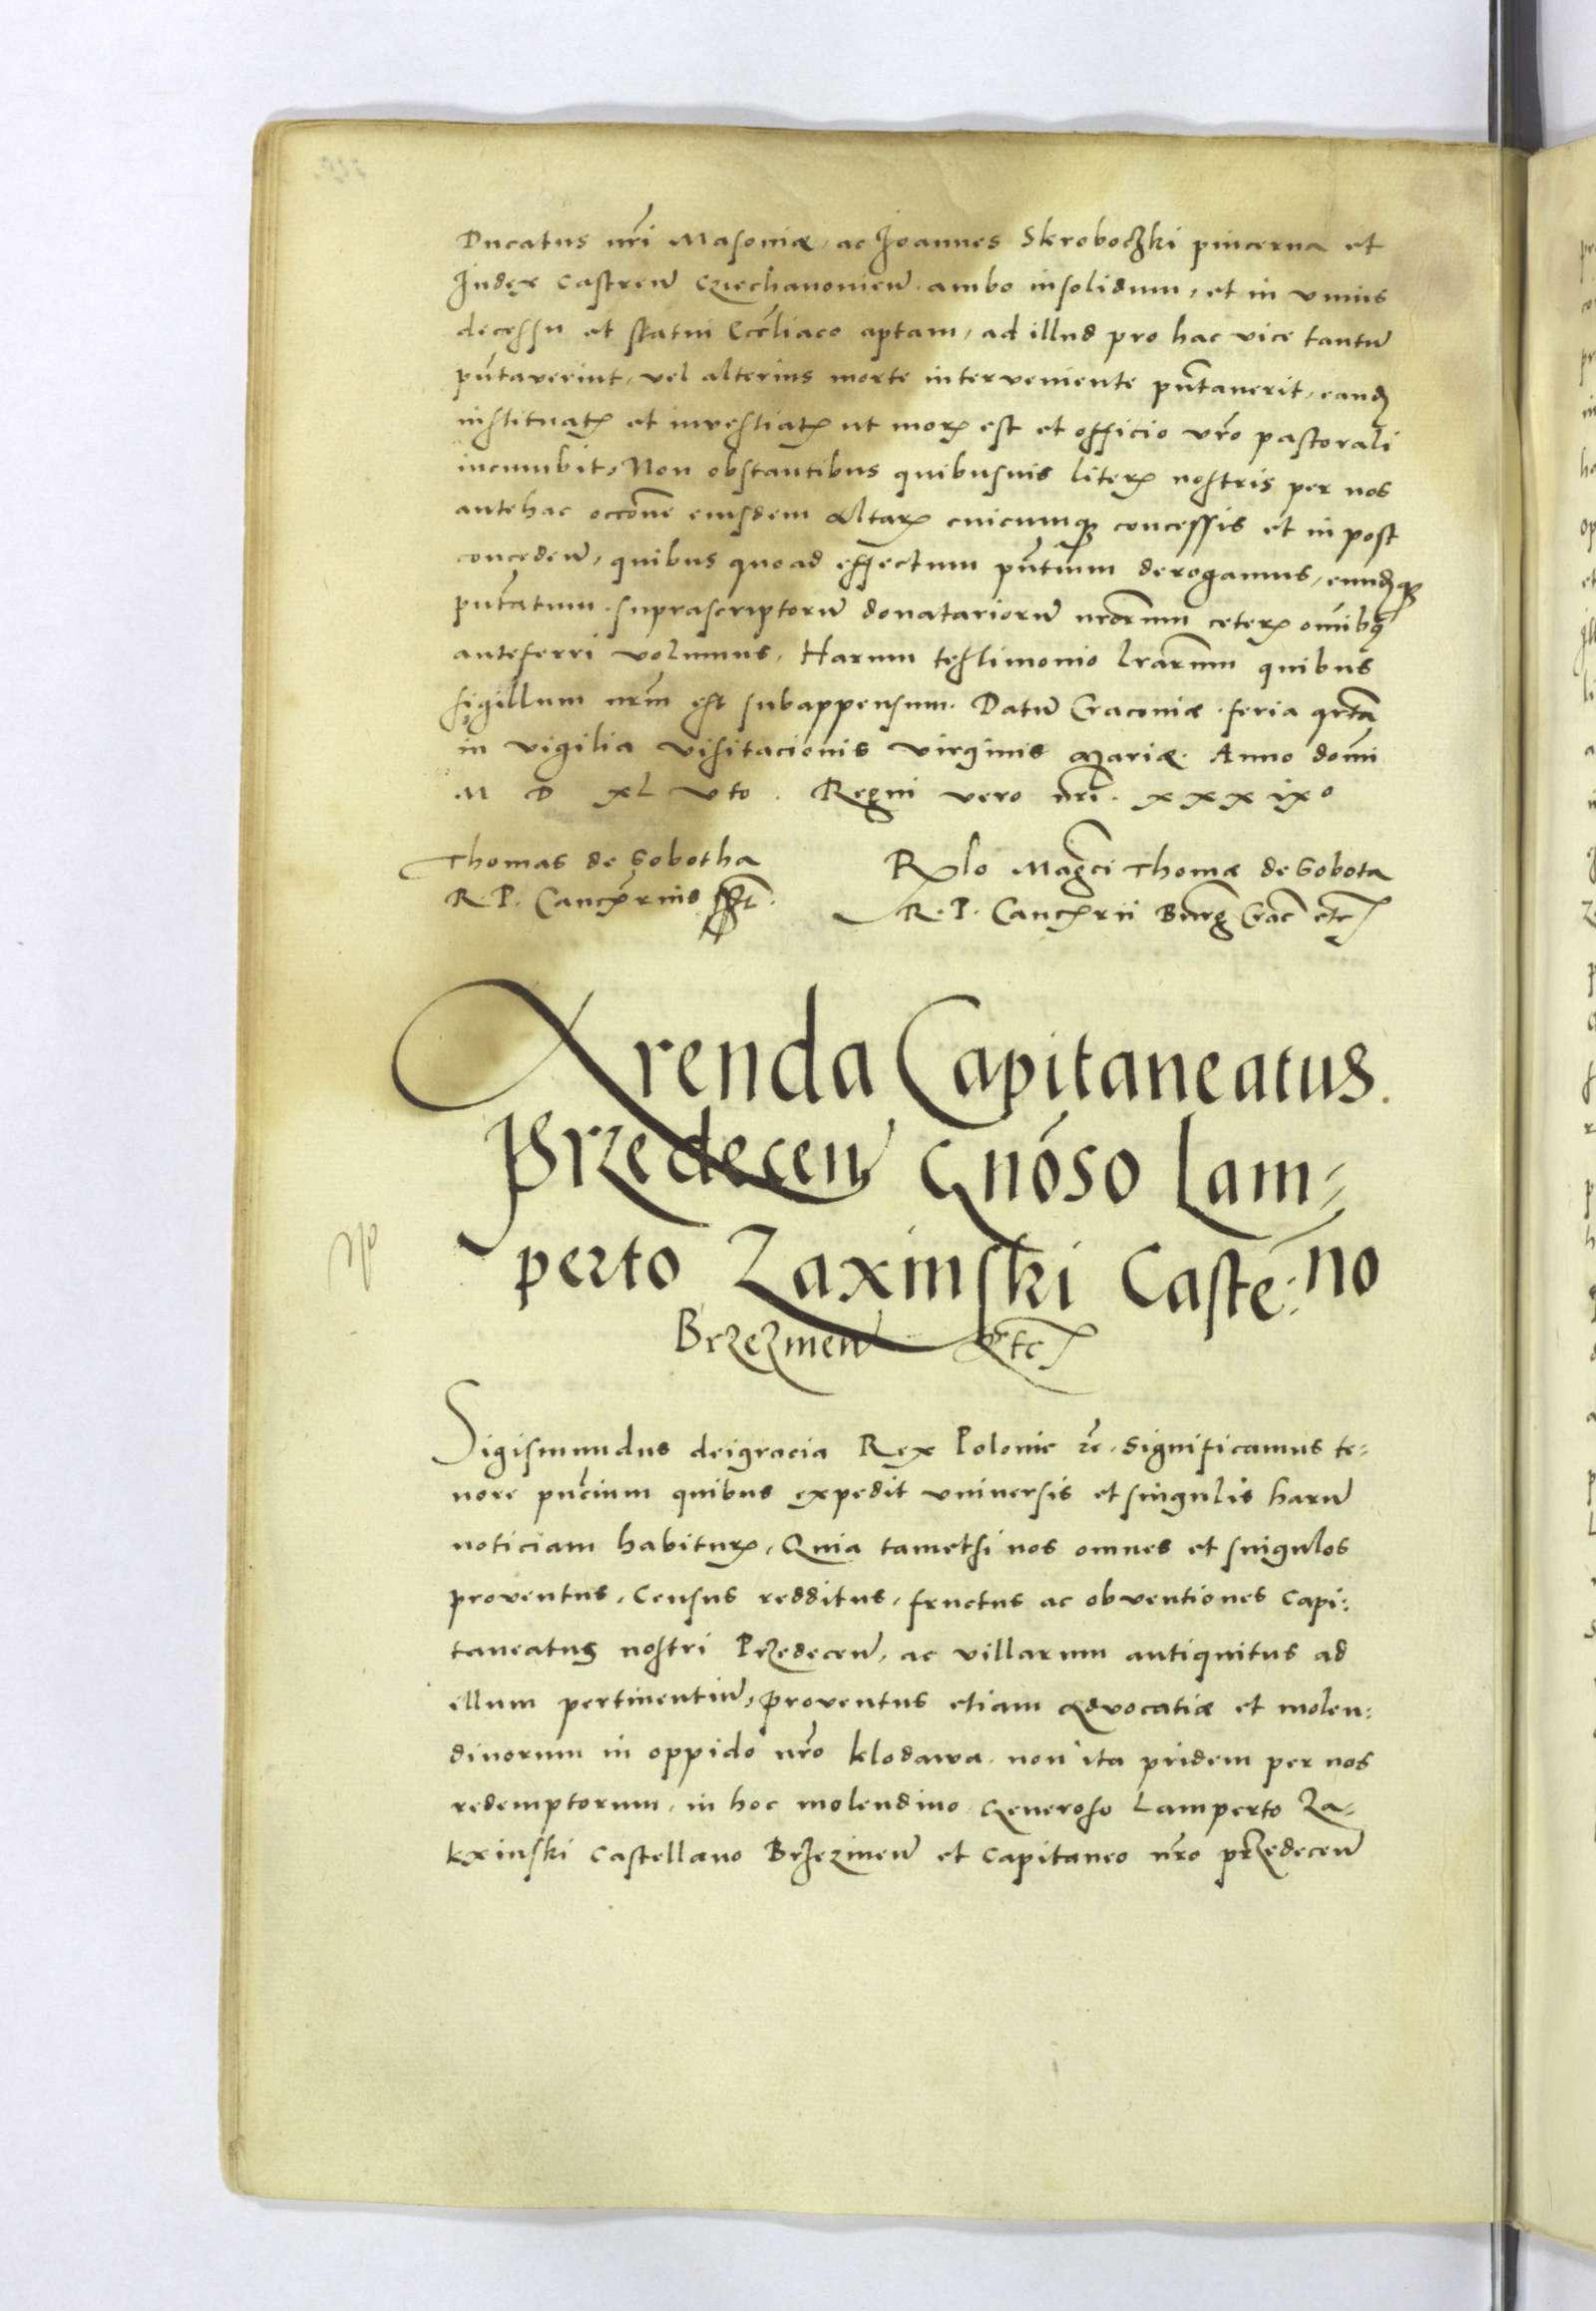 Ducatus nr̃i Masoniæ, ac Joannes Skroboczki pincerna et
Judex Castreñ Cziechanovieñ ambo insolidum, et in vnius
decessu et statui Eccl̃iaco aptam, ad illud pro hac vice tantũ
pñtaverint, vel alterius morte interveniente pñtauerit, eandꝫ
instituatꝭ et investiatꝭ ut morꝭ est et officio vr̃o pastorali
incumbit, Non obstantibus quibusuis literꝭ nostris per nos
antehac occõne eiusdem Altarꝭ cuicumqꝫ concessis et in post
concedeñ, quibus quoad effectum pñtium derogamus, eundꝫqꝫ
pñtatum suprascriptorũ donatariorũ nr̃orum ceterꝭ om̃ibꝯ
anteferri volumus, Harum testimonio lr̃arum quibus
sigillum nr̃m est subappensum. Datũ Cracouiæ feria qrta
in vigilia visitacionis virginis Mariæ. Anno dom̃i
M D XL Vto. Regni vero nr̃i. xxxixº
Thomas de Sobotha
R. P. Cancꝝrius sst.
Rꝉo Magci Thomæ de Sobota
R. P. Cancꝝrii Burg Crac etc
Arenda Capitaneatus.
Przedeceñ Gnõso Lam=
perto Zaxinski Caste:no
Brzezineñ Etc
Sigismundus dei gracia Rex Polonie rc̃. Significamus te=
nore pñcium quibus expedit vniuersis et singulis harũ
noticiam habiturꝭ, Quia tametsi nos omnes et singulos
proventus, Census redditus, fructus ac obventiones Capi:
taneatus nostri Przedeceñ, ac villarum antiquitus ad
illum pertinentiũ, proventus etiam Advocatiæ et molen:
dinorum in oppido nr̃o klodawa non ita pridem per nos
redemptorum, in hoc molendino Generoso Lamperto Za=
kxinski Castellano Brzezineñ et Capitaneo nr̃o przedeceñ